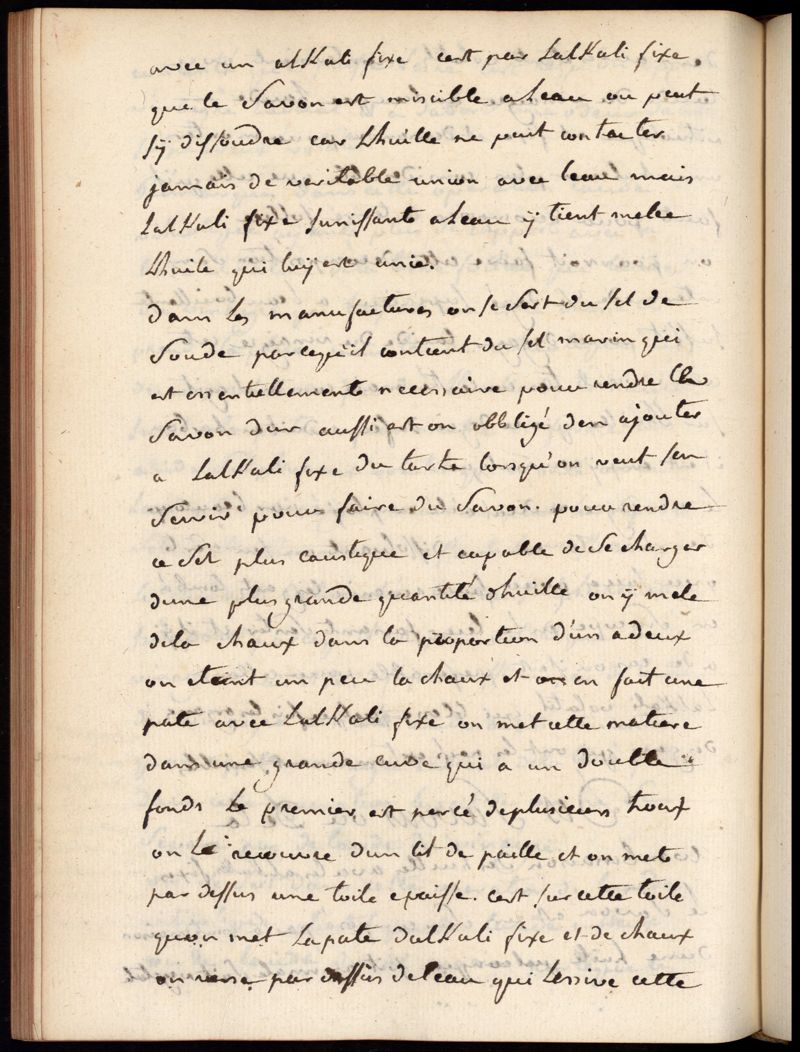 avec un alKali fixe cest par LalKali fixe
que le Savon est miscible a Leau ou peut
sÿ dissoudre car Lhuille ne peut contacter
jamais de veritable union avec leau mais
LalKali fixe sunissant a Leau ÿ tient melée
Lhuile qui luy est unie.
dans les manufactures on se sert du sel de
Soude parcequ'il contient du sel marin qui
est essentiellement necessaire pour rendre le
Savon dur aussi est on obbligé d'en ajouter
a LalKali fixe du tartre lorsqu'on veut sen
Servir pour faire du Savon. pour rendre
ce Sel plus caustique et capable de Se charger
dune plus grande quantité dhuille on ÿ mele
de la chaux dans la proportion d'un a deux
on eteint un peu la chaux et on en fait une
pate avec LalKali fixe on met cette matiere
dans une grande cuve qui a un double
fonds Le premier est percé de plusieurs trous
on Le recouvre dun lit de paille et on met
par dessus une toile epaisse. cest sur cette toile
qu'on met La pate dalKali fixe et de chaux
on verse par dessus de leau qui Lessive cette